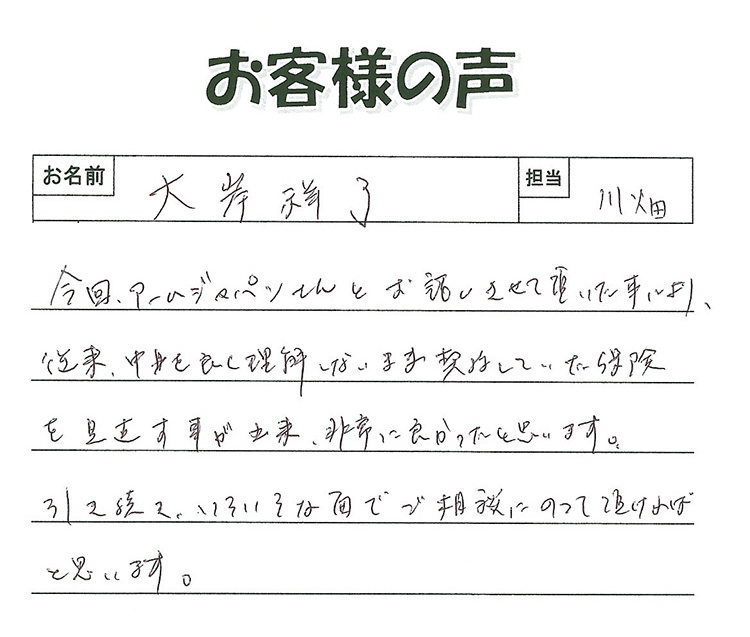 お客様の声
お名前 大岸祥了 担当 川畑
今回、アームジャパンさんとお話しさせて頂いた事により、
従来、中身を良く理解しないまま契約していた保険
を見直す事が出来、非常に良かったと思います。
引き続き、いろいろな面でご相談にのって頂ければ
と思います。